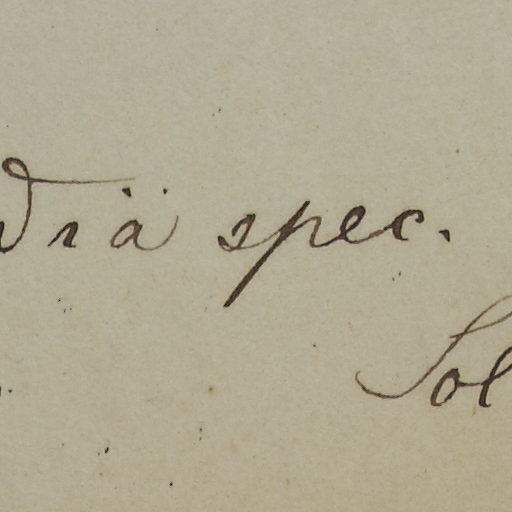 dia spec.
Sol